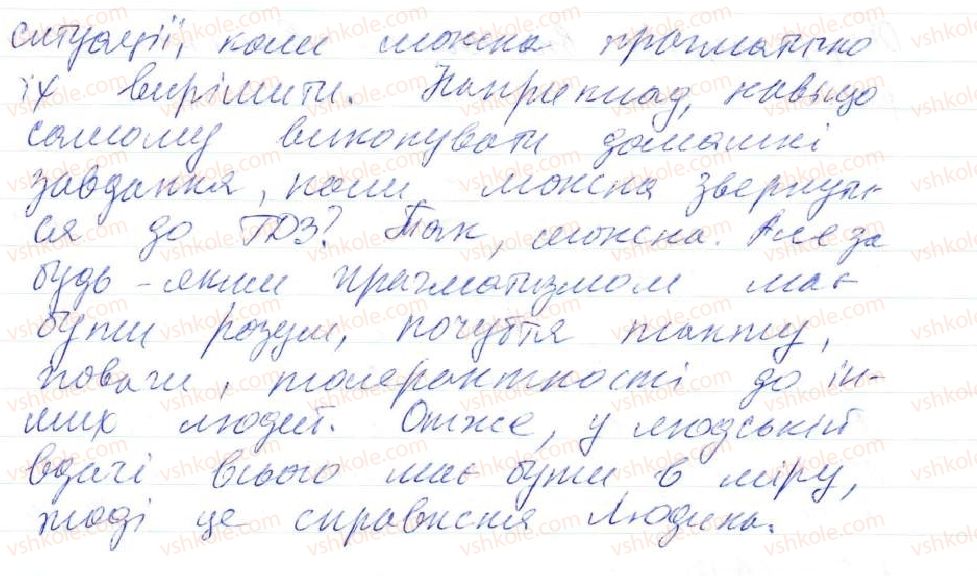 ситуації, коли можна прагматично
їх вирішити. Наприклад, навіщо
самому виконувати домашні
завдання, коли можна звернути-
ся до ГДЗ? Так, можна. Але за
будь-яким прагматизмом має
бути розум, почуття такту,
поваги, толерантності до ін-
ших людей. Отже, у людській
вдачі всього має бути в міру,
тоді це справжня Людина.